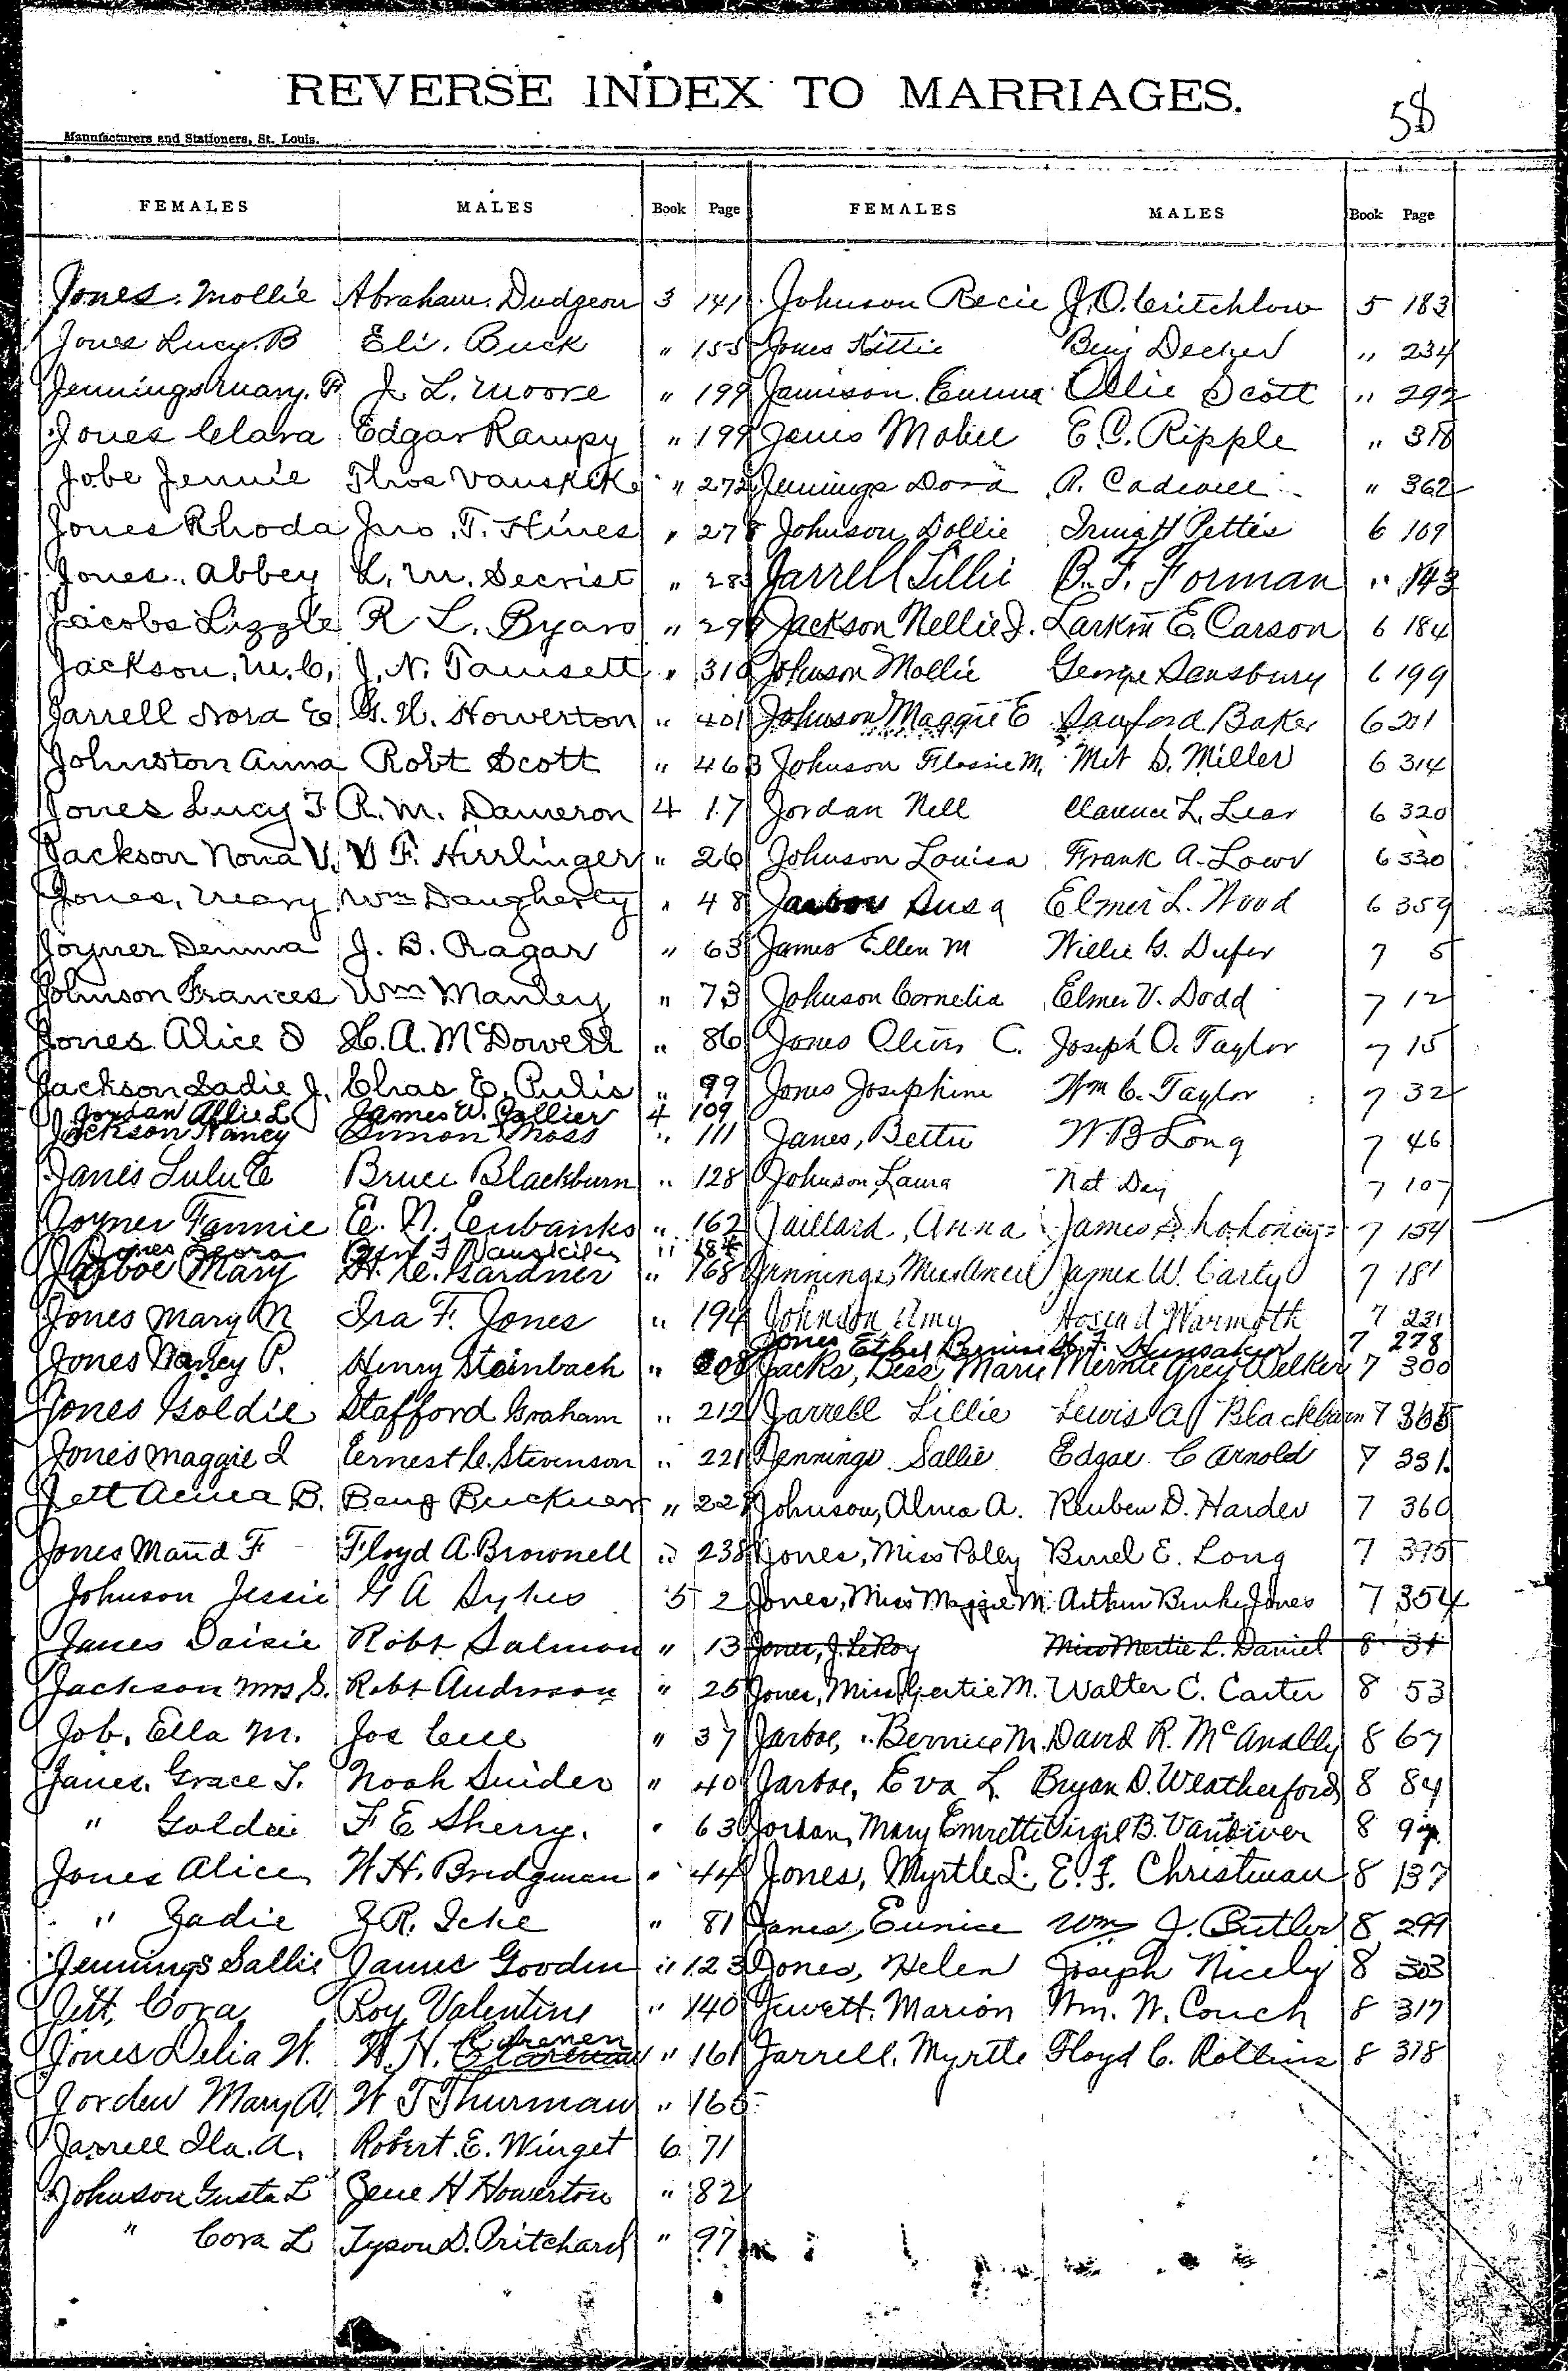 REVERSE INDEX TO MARRIAGES.
58
Manufacturers and Stationers, St. Louis.
FEMALES MALES Book Page FEMALES MALES Book Page
Jones. Mollie Abraham. Dudgeon 3 141
Jones Lucy. B Eli. Buck " 155
Jennings Mary. F J. L. Moore " 199
Jones Clara Edgar Rampy " 199
Jobe Jennie Thos Vanskike " 272
Jones Rhoda Jno. T. Hines " 278
Jones. Abbey L. M. Secrist " 283
Jacobs Lizzie R L. Byars " 299
Jackson, M. C. J. N. Tamsett " 310
Jarrell Nora E G. H. Howerton " 401
Johnston Anna Robt Scott " 463
Jones Lucy F R. M. Dameron 4 17
Jackson Nona V. V F. Hirrlinger " 26
Jones, Mary Wm Daugherty " 48
Joyner Demma J. B. Ragar " 63
Johnson Frances Wm Manley " 73
Jones Alice O H. A. McDowell " 86
Jackson Sadie J. Chas E. Pulis " 99
Jordan Allie L James W. Collier 4 109
Jackson Nancy Simon Moss " 111
Janes Lulu E Bruce Blackburn " 128
Joyner Fannie E. N. Eubanks " 162
Jones Leora Benj F Vanskike " 184
Jarboe Mary H. C. Gardner " 168
Jones Mary M Ira F. Jones " 194
Jones Nancy P. Henry Steinbach " 208
Jones Goldie Stafford Graham " 212
Jones Maggie I Ernest C. Stevenson " 221
Jett Anna B. Benj Buckner " 228
Jones Maud F Floyd A. Brownell " 238
Johnson Jessie G A Sykes 5 2
Janes Daisie Robt. Salmon " 13
Jackson Mrs S. Robt Anderson " 25
Job, Ella M. Jos Cull " 37
Janes. Grace T. Noah Snider " 40
" Goldie F E Sherry. " 63
Jones Alice W. H. Bridgman " 44
" Zadie Z R. Icke " 81
Jennings Sallie James Gooden " 123
Jett, Cora Roy Valentine " 140
Jones Delia W. W. H. " 161
Jorden Mary A. W T Thurman " 165
Jarrell Ila. A. Robert. E. Winget 6 71
Johnson Gusta L Gene H Howerton " 82
" Cora L Tyson D. Pritchard " 97
Johnson Recie J. O. Critchlow 5 183
Jones Kittie Benj Decker " 234
Jamison. Emma Ollie Scott " 292
Janes Mabel E. C. Ripple " 318
Jennings Dora R. Cadwell " 362
Johnson Dollie Irving H Pettis 6 109
Jarrell Lillie B. F. Forman " 143
Jackson Nellie J. Larkin E. Carson 6 184
Johnson Mollie George Sansbury 6 199
Johnson Maggie E Sanford Baker 6 201
Johnson Flossie M. Mit S. Miller 6 314
Jordan Nell Clarence L. Lear 6 320
Johnson Louisa Frank A. Lowr 6 330
Susa Elmer L. Wood 6 359
James Ellen M Willie G. Dufer 7 5
Johnson Cornelia Elmer V. Dodd 7 12
Jones C. Joseph O. Taylor 7 15
Jones Josephine Wm C. Taylor 7 32
Janes, Bettie W B Long 7 46
Johnson, Laura Nat Day 7 107
Jaillard, Anna James 7 154
Jennings, Miss James W. Carty 7 181
Johnson Amy Hosea A Warmoth 7 221
Jones Ethel Bernice Hunsaker 7 278
Jacks, Bess Marie Mernie Grey Welker 7 300
Jarrell Lillie Lewis A Blackburn 7 365
Jennings Sallie Edgar C Arnold 7 331
Johnson, Alma A. Reuben D. Harder 7 360
Jones, Miss Polly Burrel E. Long 7 395
Jones, Miss Maggie M. Arthur Burke Jones 7 354
Jones, J. LeRoy Miss Mertie L. Daniel 8 31
Jones, Miss Gertie M. Walter C. Carter 8 53
Jarboe, Bernice M. David R. McAnally 8 67
Jarboe, Eva L. Bryan D. Weatherford 8 84
Jordan, Mary Emrette Virgil B. Vandiver 8
Jones, Myrtle L. E. F. Christman 8 137
Janes, Eunice Wm J. Butler 8 299
Jones, Helen Joseph Nicely 8 303
Jewett. Marion Wm. W. Couch 8 317
Jarrell, Myrtle Floyd C. Rollins 8 318